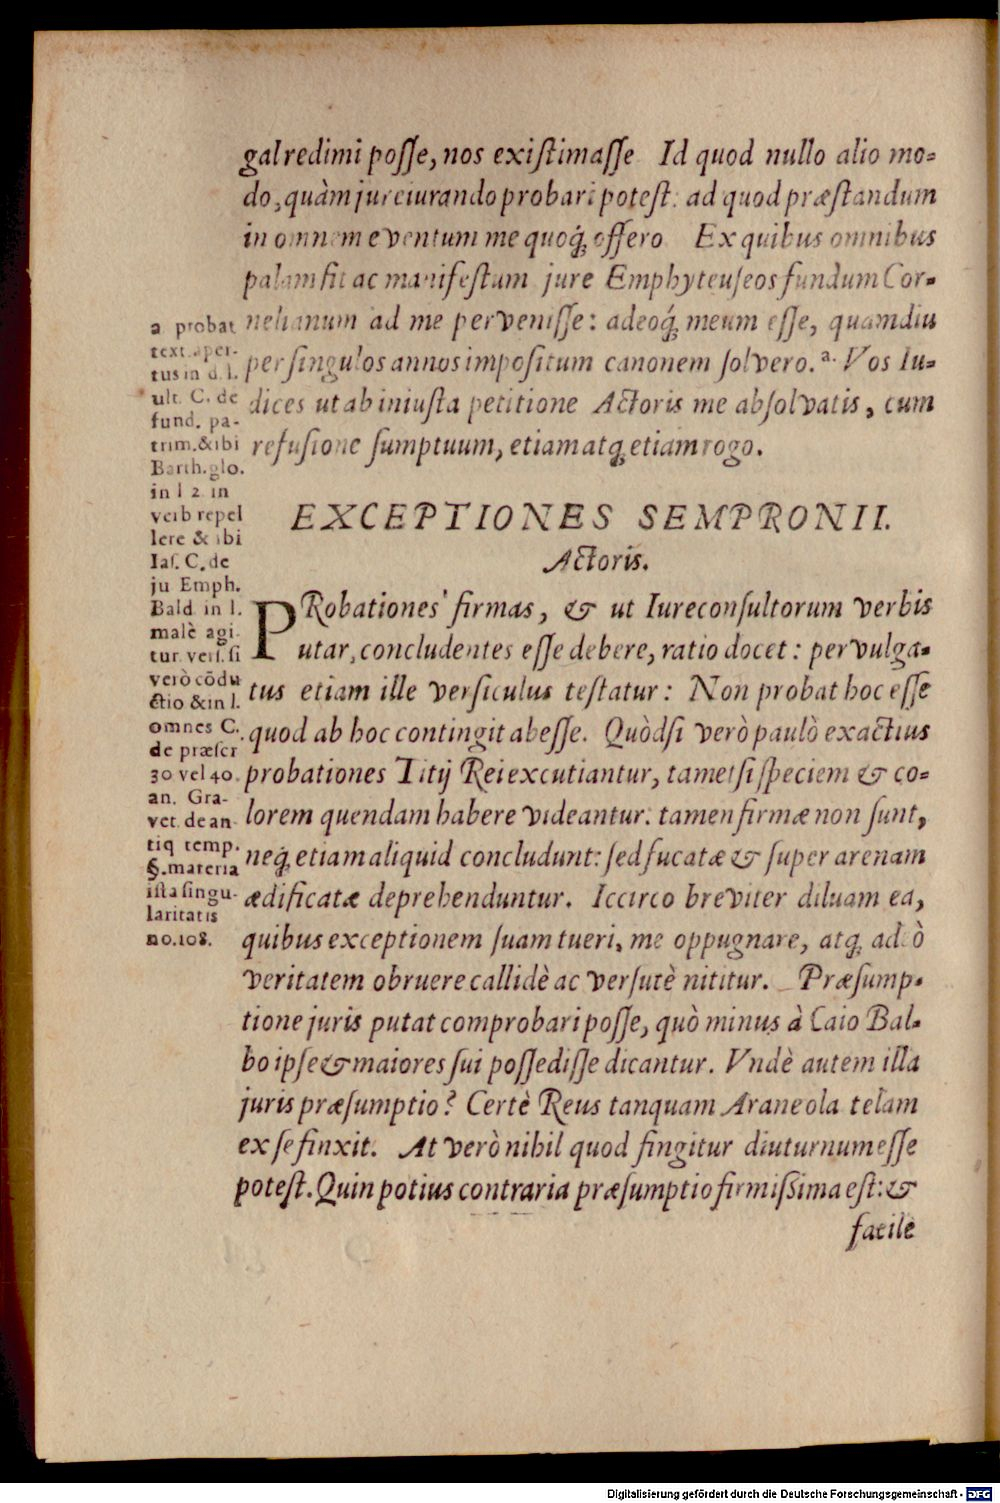 gal redimi posse, nos existimasse Id quod nullo alio mo=
do, quàm jureiurando probari potest: ad quod præstandum
in omnem eventum me quoq́; offero Ex quibus omnibus
palam fit ac manifestum jure Emphyteuseos fundum Cor=
nelianum ad me pervenisse: adeoq́; meum esse, quamdiu
per singulos annos impositum canonem solvero.ᵃ· Vos Iu=
dices ut ab iniusta petitione Actoris me absolvatis, cum
refusione sumptuum, etiam atq; etiam rogo.
a probat
text. aper-
tus in d. l.
ult. C. de
fund. pa-
trim. & ibi
Barth. glo.
in l 2 in
verb repel
lere & ibi
Ias. C. de
ju Emph.
Bald in l.
malè agi-
tur vers. si
verò cõdu
ctio & in l.
omnes C.
de præscr
30 vel 40.
an. Gra-
vet. de an-
tiq temp.
§. materia
ista singu-
laritatis
no. 108.
EXCEPTIONES SEMPRONII.
Actoris.
PRobationes firmas, & ut Iureconsultorum verbis
utar, concludentes esse debere, ratio docet: pervulga=
tus etiam ille versiculus testatur: Non probat hoc esse
quod ab hoc contingit abesse. Quòdsi verò paulò exactius
probationes Titij Rei excutiantur, tametsi speciem & co=
lorem quendam habere videantur. tamen firmæ non sunt,
neq́; etiam aliquid concludunt: sed fucatæ & super arenam
ædificatæ deprehenduntur. Iccirco breviter diluam ea,
quibus exceptionem suam tueri, me oppugnare, atq; adeò
veritatem obruere callidè ac versutè nititur. Præsump=
tione juris putat comprobari posse, quò minus à Caio Bal=
bo ipse & maiores sui possedisse dicantur. Vndè autem illa
juris præsumptio? Certè Reus tanquam Araneola telam
ex se finxit. At verò nihil quod fingitur diuturnum esse
potest. Quin potius contraria præsumptio firmissima est: &
facilè
Digitalisierung gefördert durch die Deutsche Forschungsgemeinschaft - DFG